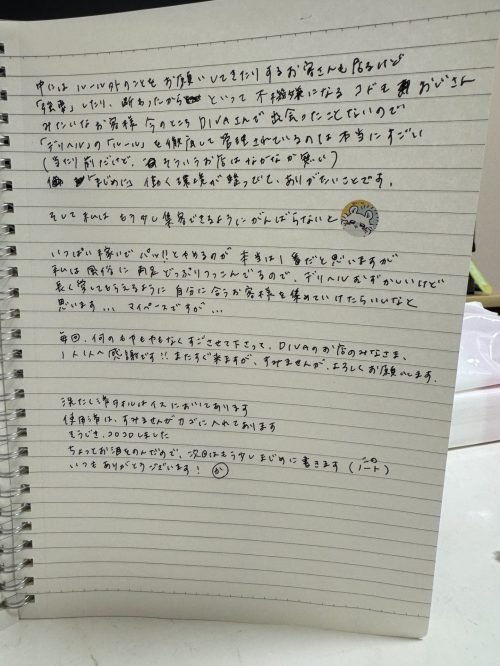 中には ルール外のことをお願いしてきたりするお客さんも居るけど
「強要」したり、断わったからといって不機嫌になるコドモおじさん
みたいなお客様 今のところDIVAさんで出会ったことないので
「デリヘル」の「ルール」を徹底して管理されているのは本当にすごい
(当たり前だけど、そういうお店はなかなか無い)
「まじめに」働く環境が整っていて、ありがたいことです。
そして私は もう少し集客できるようにがんばらないと
いっぱい稼いでパッ!!とやめるのが本当は1番だと思いますが
私は風俗に両足どっぷりつっこんでるので、デリヘルむずかしいけど
長く居してもらえるように自分に合うお客様を集めていけたらいいなと
思います... マイペースですが...
毎回、何のモヤモヤもなくすごさせて下さって、DIVAのお店のみなさま、
1人1人へ感謝です!! またすぐ来ますが、すみませんが、よろしくお願いします。
洗たく済タオルはイスにおいてあります
使用済は、すみませんがカゴに入れてあります
そうじき、コロコロしました
ちょっとお酒をのんだので、次回はもう少しまじめに書きます(このノート)
いつもありがとうございます! か